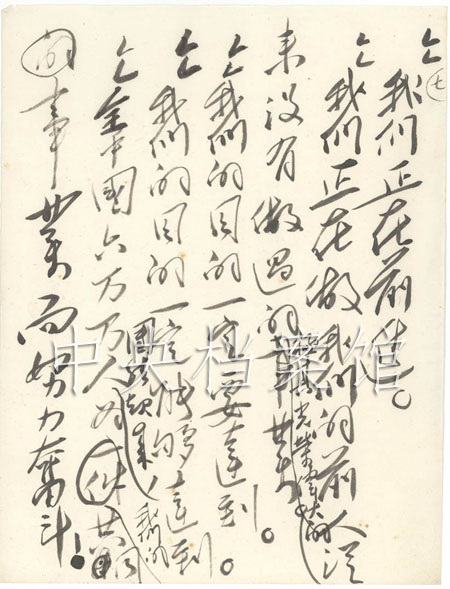 七
我们正在前进。
我们正在做我们的前人从
来没有做过的事业。
极其光荣伟大的
我们的目的一定要达到。
我们的目的一定能够达到。
全中國六万万人为一件共同
團结起来
我们的
的事业而努力奋斗!
中央档案馆